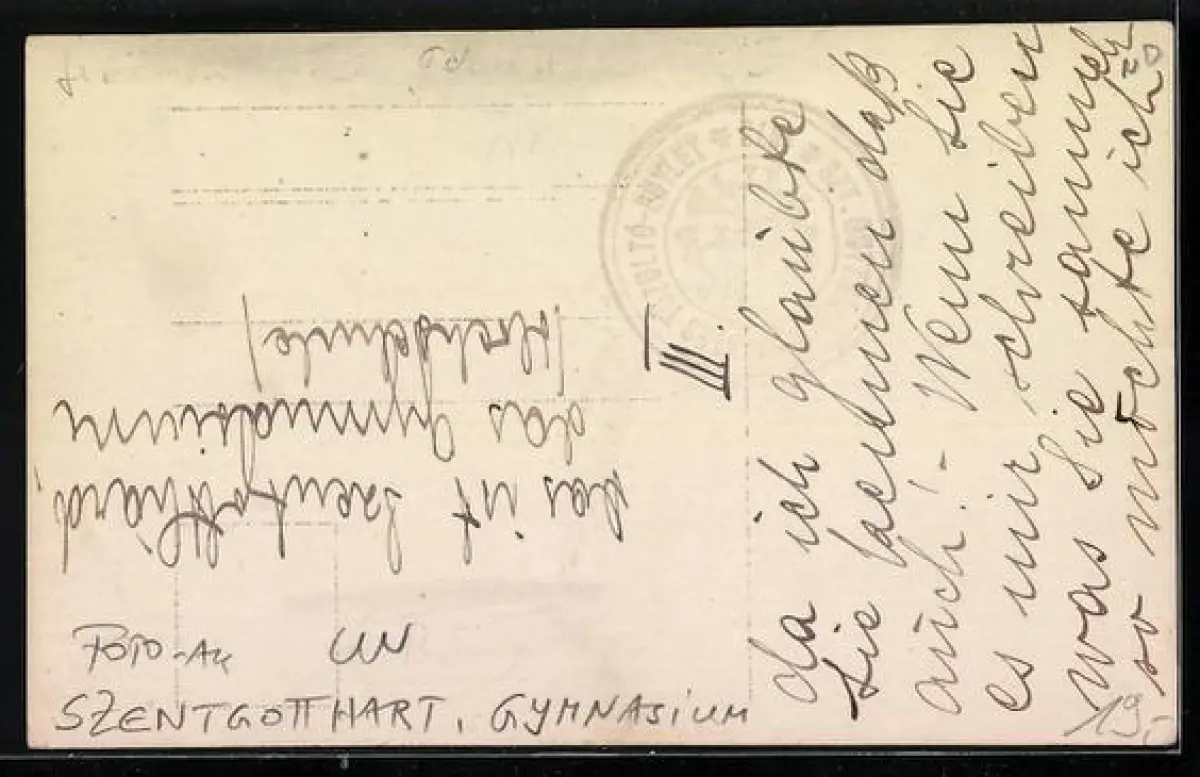 das ist Szentgotthárd,
das Gymnasium
/Hochschule/
III.
da ich glaubte
Sie
auch! - Wenn Sie
es mir schreiben
was Sie sammeln
so möchte ich
FOTO-AK UN
SZENTGOTTHART, GYMNASIUM
19.-
20